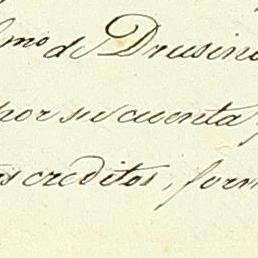 mo de Drusin
por su cuenta
creditos, form